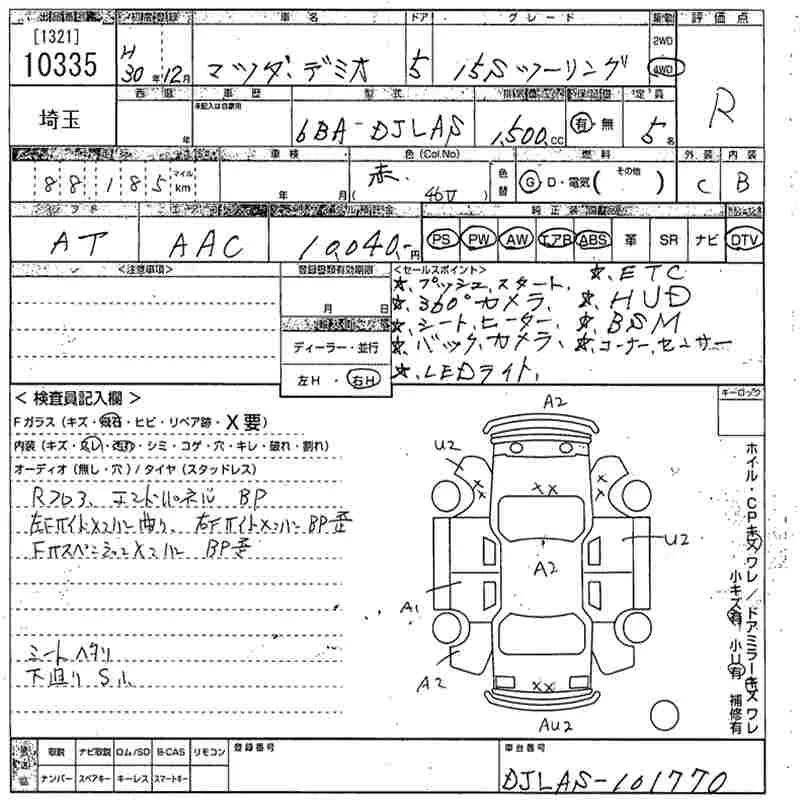 初度登録 車名 ドア グレード 駆動 評価点
[1321]
10335
H30年12月 マツダ デミオ 5 15Sツーリング 2WD 4WD R
埼玉
年 車歴 型式 定員
未記入は自家用
6BA-DJLAS 1,500.cc 有・無 5名
車検 色(Col.No) 燃料 外装 内装
88185 マイル km 年 月 赤. ( 46V ) 色替 G・D・電気( その他 ) C B
AT AAC 10,040.-円 PS PW AW エアB ABS 革 SR ナビ DTV
<注意事項> 登録書類有効期限 <セールスポイント>
月 日
☆.プッシュ.スタート. ☆.ETC
☆.360°カメラ. ☆.HUD
☆.シート.ヒーター. ☆.BSM
☆.バック.カメラ. ☆.コーナー.センサー
☆.LEDライト.
ディーラー・並行
左H・右H
<検査員記入欄> キーロック
Fガラス(キズ・飛石・ヒビ・リペア跡・X要)
内装(キズ・スレ・汚れ・シミ・コゲ・穴・キレ・破れ・割れ)
オーディオ(無し・穴)/タイヤ(スタッドレス)
Rフロア、エンドパネル BP
左Fサイドメンバー曲り、右FサイドメンバーBP歪
Fサスペンションメンバー BP歪
シートヘタリ
下廻りS小
A2
U2
A2
U2
A1
A2
AU2
ホイル・CPキズワレ/ドアミラーキズワレ
小キズ有 小U有 補修有
取説 ナビ取説 ロム/SD B-CAS リモコン 登録番号 車台番号
ナンバー スペアキー キーレス スマートキー
DJLAS-101770